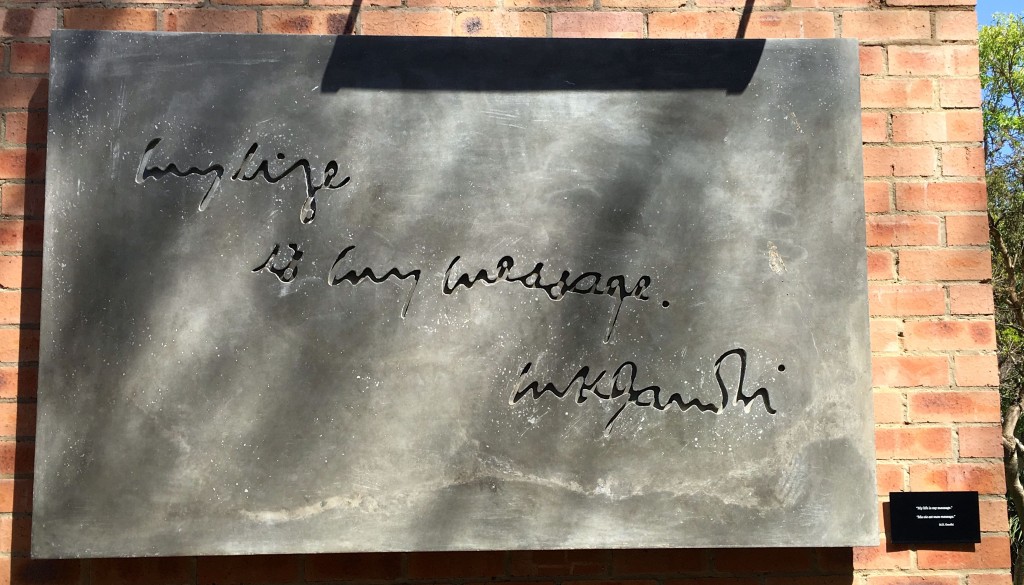 my life
is my message.
mkgandhi
"My life is my message."
M.K. Gandhi